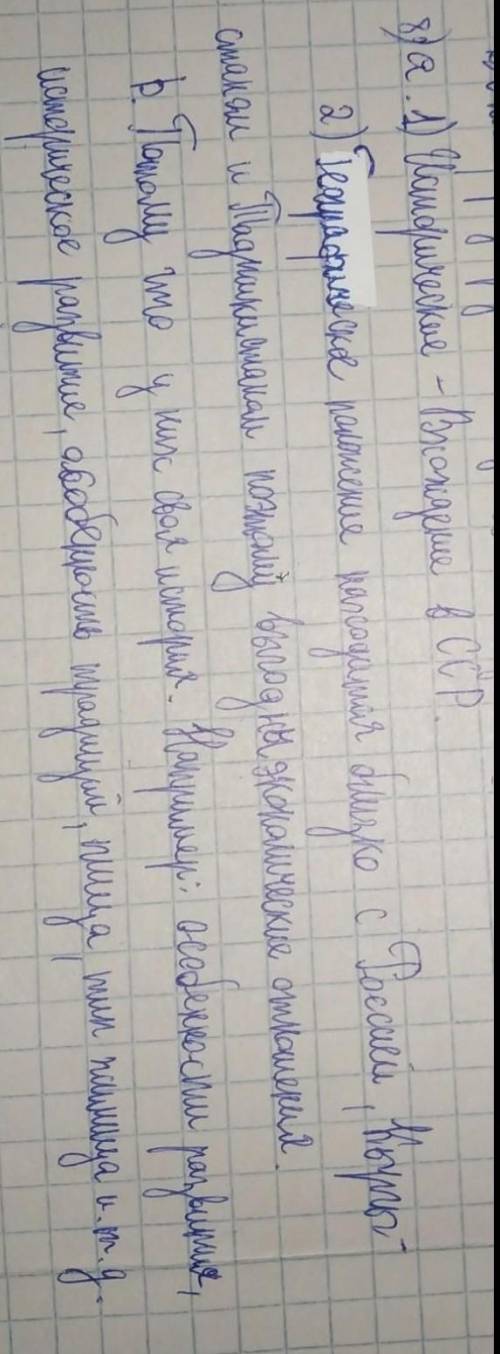 8) а. 1) Исторические - Вхождение в СССР.
2) Географическое положение находится близко с Россией, Кыргы-
стакам и Таджикистакам поэтому выгодны экономические отношения.
b. Потому что у них своя история. Например: особенности развития,
историческое развитие, особенность традиций, пища, тип жилища и.т.д.